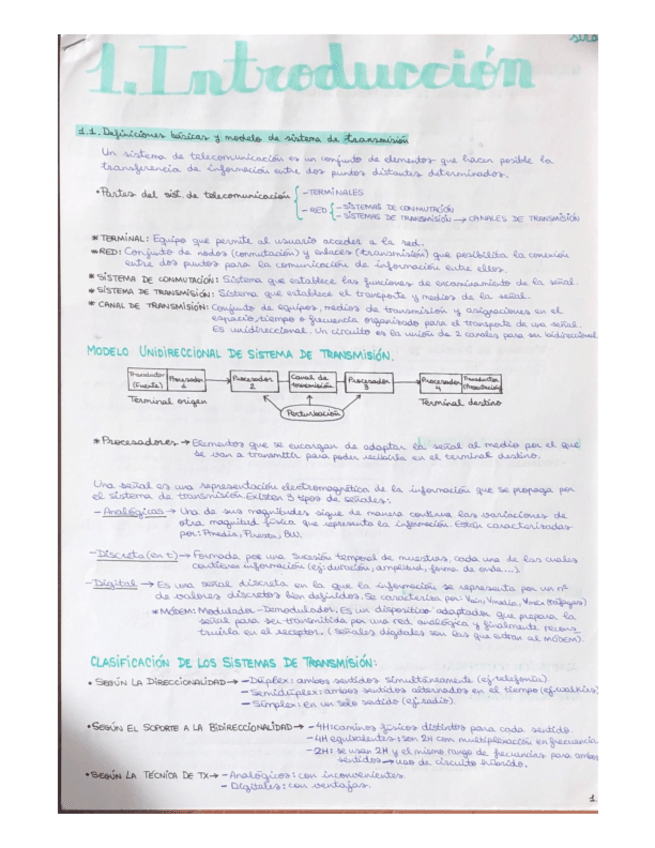 1. Introducción
1.1. Definiciones básicas y modelo de sistema de transmisión
Un sistema de telecomunicación es un conjunto de elementos que hacen posible la
transferencia de información entre dos puntos distantes determinados.
• Partes del sist. de telecomunicación
- TERMINALES
- RED
- SISTEMAS DE CONMUTACIÓN
- SISTEMAS DE TRANSMISIÓN → CANALES DE TRANSMISIÓN
* TERMINAL: Equipo que permite al usuario acceder a la red.
* RED: Conjunto de nodos (conmutación) y enlaces (transmisión) que posibilita la conexión
entre dos puntos para la comunicación de información entre ellos.
* SISTEMA DE CONMUTACIÓN: Sistema que establece las funciones de encaminamiento de la señal.
* SISTEMA DE TRANSMISIÓN: Sistema que establece el transporte y medios de la señal.
* CANAL DE TRANSMISIÓN: Conjunto de equipos, medios de transmisión y asignaciones en el
espacio, tiempo o frecuencia organizado para el transporte de una señal.
Es unidireccional. Un circuito es la unión de 2 canales para ser bidireccional
MODELO UNIDIRECCIONAL DE SISTEMA DE TRANSMISIÓN.
Transductor (Fuente)
Procesador 1
Procesador 2
Canal de transmisión
Procesador 3
Procesador 4
Transductor
Terminal origen
Perturbación
Terminal destino
* Procesadores → Elementos que se encargan de adaptar la señal al medio por el que
se van a transmitir para poder recibirla en el terminal destino.
Una señal es una representación electromagnética de la información que se propaga por
el sistema de transmisión. Existen 3 tipos de señales:
- Analógicas → Una de sus magnitudes sigue de manera continua las variaciones de
otra magnitud física que representa la información. Están caracterizadas
por: Pmedia, Pcresta, BW.
- Discreta (en t) → Formada por una sucesión temporal de muestras, cada una de las cuales
contienen información (ej: duración, amplitud, forma de onda...)
- Digital → Es una señal discreta en la que la información se representa por un nº
de valores discretos bien definidos. Se caracteriza por: Vmin, Vmedia, Vmax
* MÓDEM: Modulador - Demodulador. Es un dispositivo adaptador que prepara la
señal para ser transmitida por una red analógica y finalmente recons
truirla en el receptor. (Señales digitales son las que entran al MÓDEM).
CLASIFICACIÓN DE LOS SISTEMAS DE TRANSMISIÓN:
• SEGÚN LA DIRECCIONALIDAD → - Dúplex: ambos sentidos simultáneamente (ej. telefonía)
- Semidúplex: ambos sentidos alternados en el tiempo (ej. walkies)
- Símplex: en un solo sentido (ej. radio).
• SEGÚN EL SOPORTE A LA BIDIRECCIONALIDAD → - 4H: caminos físicos distintos para cada sentido.
- 4H equivalentes: son 2H con multiplexación en frecuencia
- 2H: se usan 2H y el mismo rango de frecuencias para ambos
sentidos → uso de circuito híbrido.
• SEGÚN LA TÉCNICA DE TX → - Analógicos: con inconvenientes.
- Digitales: con ventajas.
1.